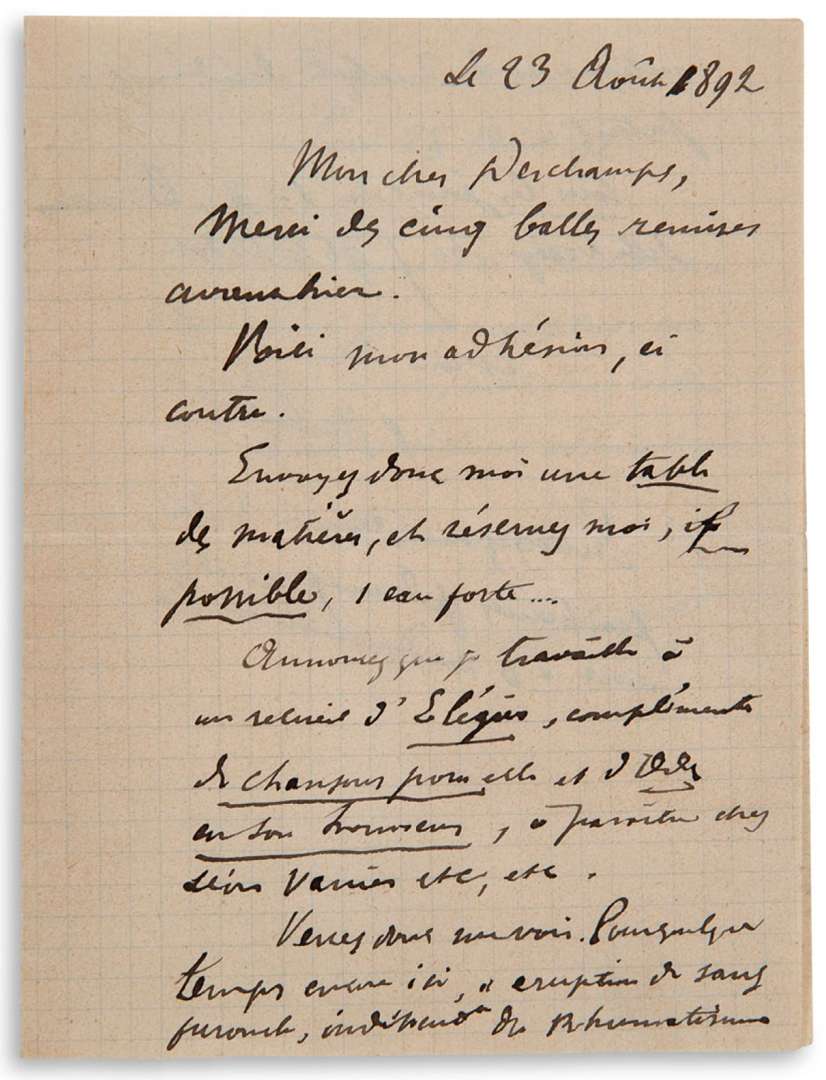 Le 23 Août 1892
Mon cher Deschamps,
Merci des cinq balles remises
avant hier.
Voici mon adhésion, ci
contre.
Envoyez donc moi une table
des matières, et réservez moi, if
possible, 1 eau forte....
Annoncez que je travaille à
un recueil d'Elégies, compléments
de chansons pour elle et d'Odes
en son honneur, à paraître chez
Léon Vanier etc, etc.
Venez donc me voir. Pour quelque
temps encore ici, "éruption de sang
furoncle, indépendt de Rhumatisme